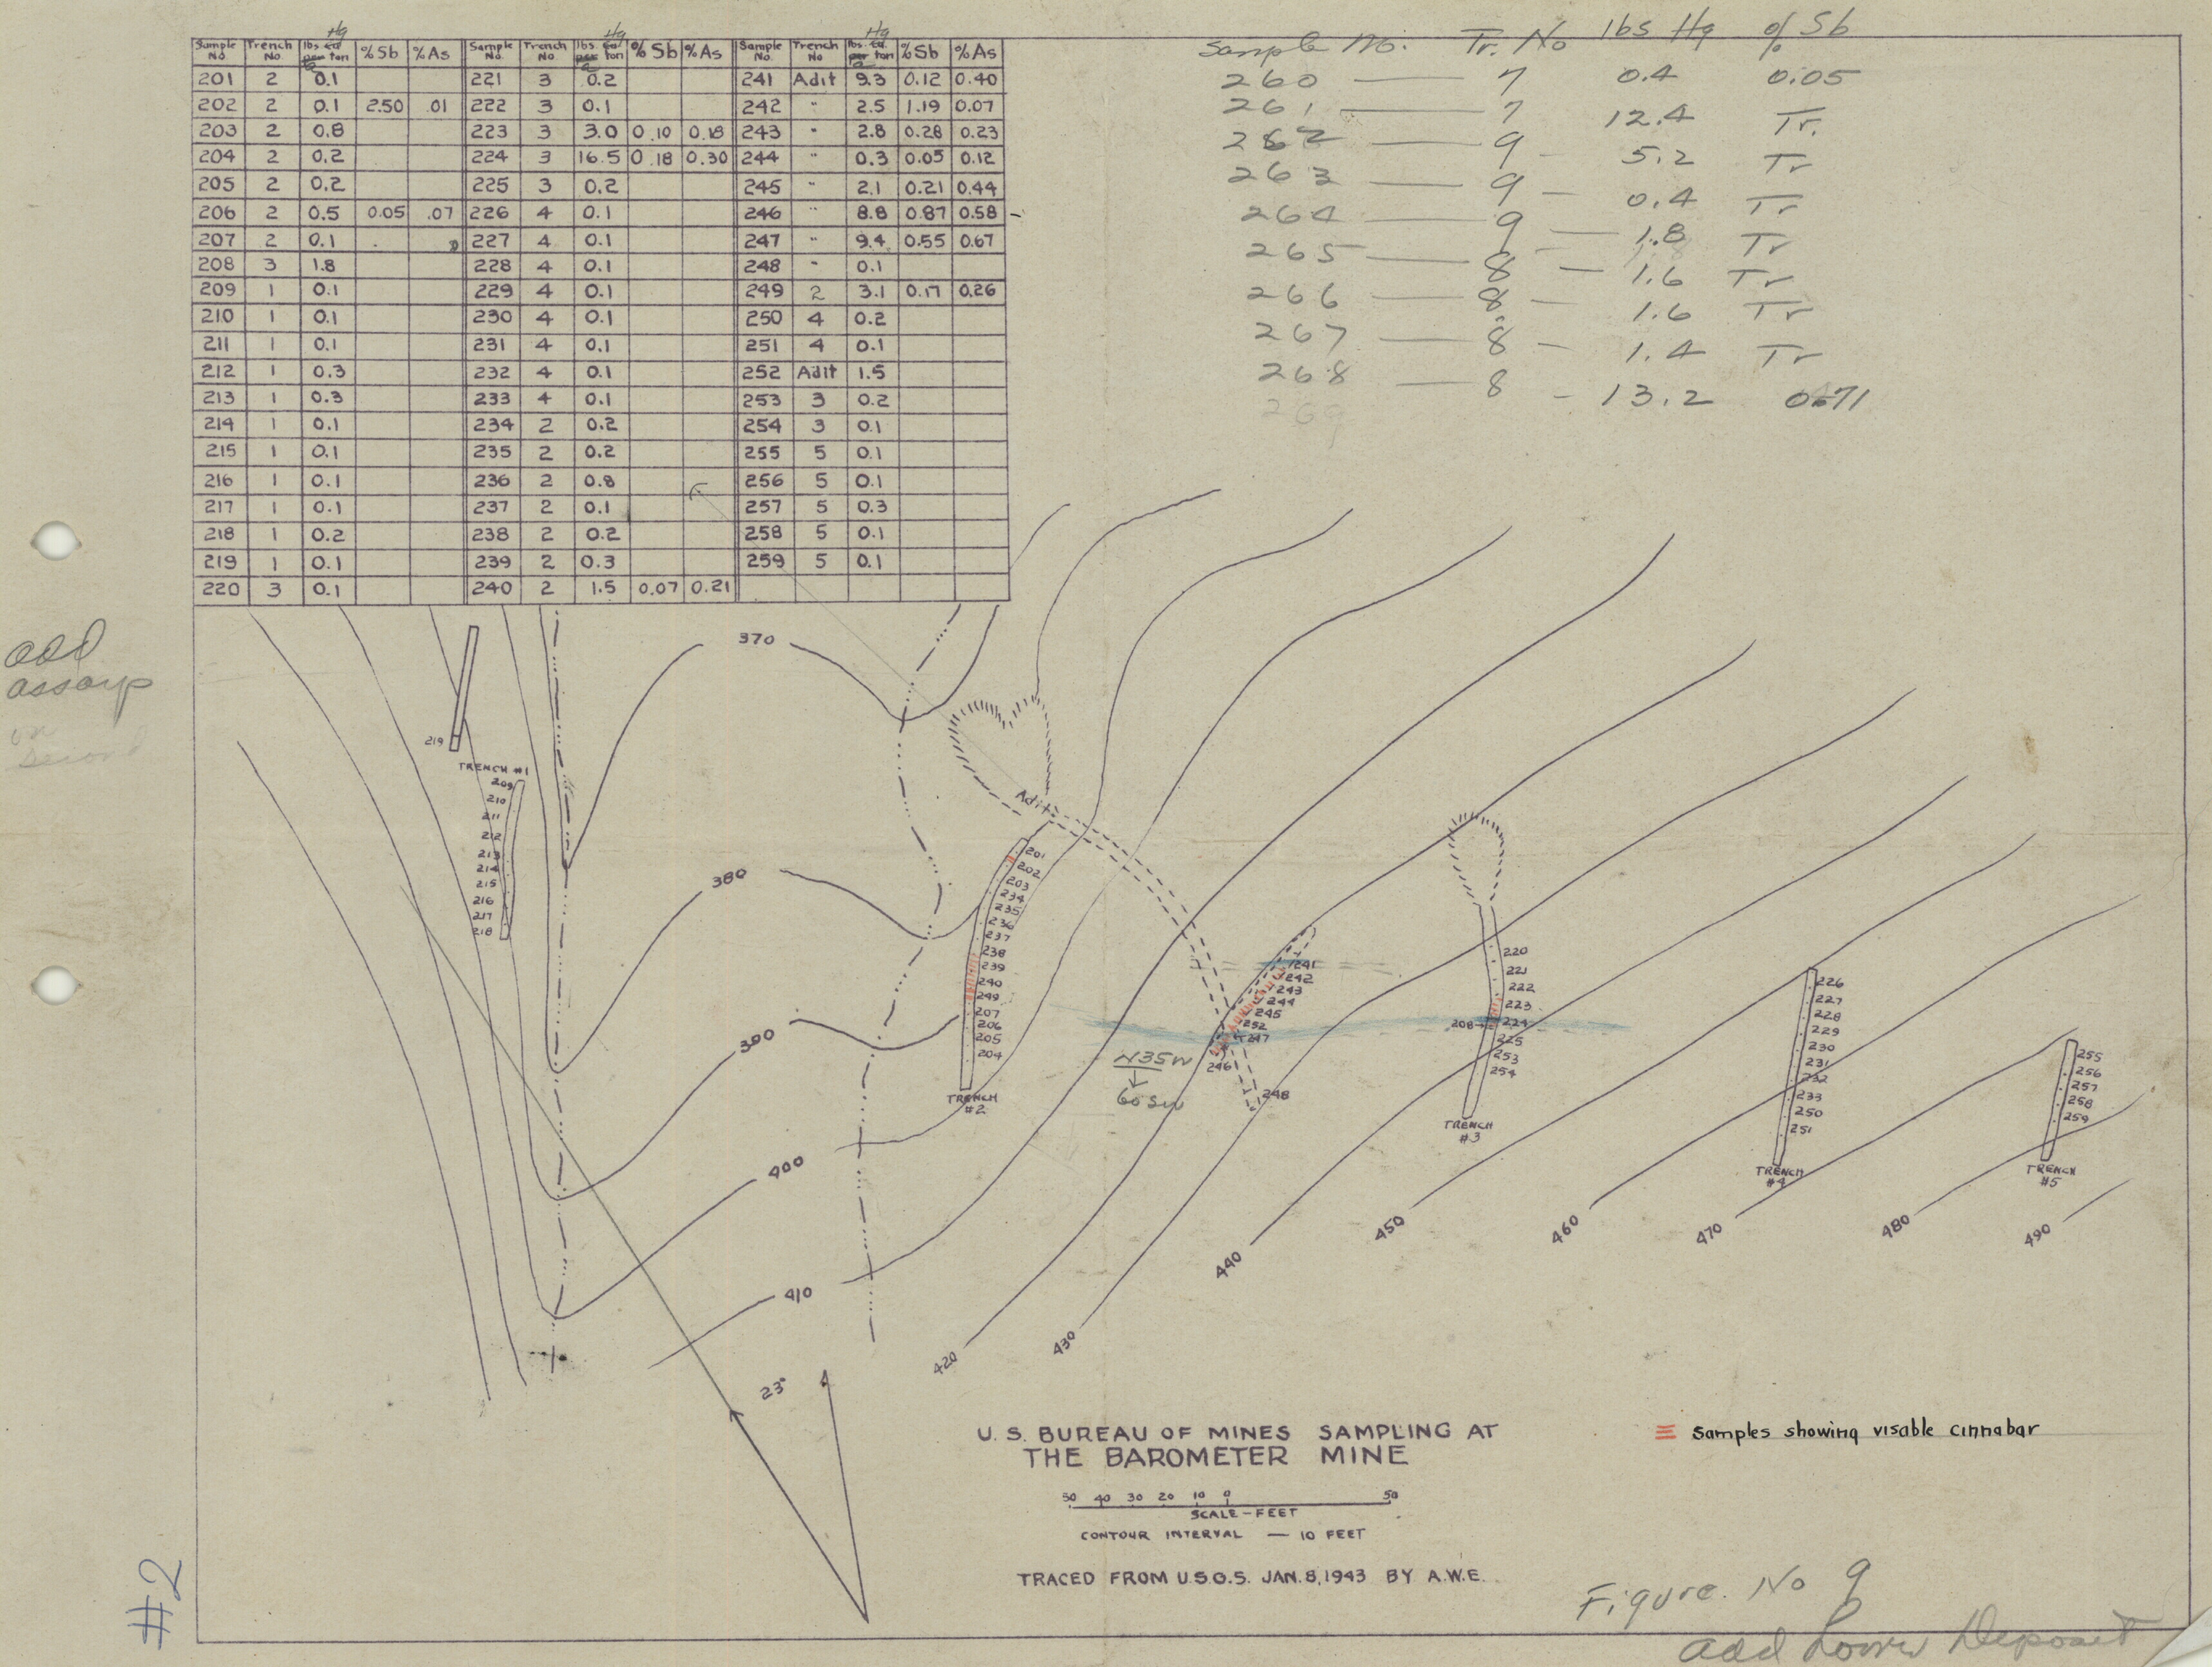 Sample No. Trench No. lbs. Hg per ton %Sb %As Sample No. Trench No. lbs. Hg per ton %Sb %As Sample No. Trench No lbs. Hg per ton %Sb %As
201 2 0.1 221 3 0.2 241 Adit 9.3 0.12 0.40
202 2 0.1 2.50 .01 222 3 0.1 242 " 2.5 1.19 0.07
203 2 0.8 223 3 3.0 0.10 0.18 243 " 2.8 0.28 0.23
204 2 0.2 224 3 16.5 0.18 0.30 244 " 0.3 0.05 0.12
205 2 0.2 225 3 0.2 245 " 2.1 0.21 0.44
206 2 0.5 0.05 .07 226 4 0.1 246 " 8.8 0.87 0.58
207 2 0.1 227 4 0.1 247 " 9.4 0.55 0.67
208 3 1.8 228 4 0.1 248 " 0.1
209 1 0.1 229 4 0.1 249 2 3.1 0.17 0.26
210 1 0.1 230 4 0.1 250 4 0.2
211 1 0.1 231 4 0.1 251 4 0.1
212 1 0.3 232 4 0.1 252 Adit 1.5
213 1 0.3 233 4 0.1 253 3 0.2
214 1 0.1 234 2 0.2 254 3 0.1
215 1 0.1 235 2 0.2 255 5 0.1
216 1 0.1 236 2 0.8 256 5 0.1
217 1 0.1 237 2 0.1 257 5 0.3
218 1 0.2 238 2 0.2 258 5 0.1
219 1 0.1 239 2 0.3 259 5 0.1
220 3 0.1 240 2 1.5 0.07 0.21
Sample No. Tr. No lbs Hg % Sb
260 — 7 0.4 0.05
261 — 7 12.4 Tr.
262 — 9 - 5.2 Tr
263 — 9 - 0.4 Tr
264 — 9 — 1.8 Tr
265 — 8 — 1.6 Tr
266 — 8 - 1.6 Tr
267 — 8 - 1.4 Tr
268 — 8 - 13.2 0.71
269
add
assays
on
370
219
TRENCH #1
209
210
211
212
213
214
215
216
217
218
380
390
400
410
Adit
201
202
203
234
235
236
237
238
239
240
249
207
206
205
204
TRENCH
#2
241
242
243
244
245
252
247
246
248
N35W
60 SW
220
221
222
223
208 224
225
253
254
TRENCH
#3
226
227
228
229
230
231
232
233
250
251
TRENCH
#4
255
256
257
258
259
TRENCH
#5
420
430
440
450
460
470
480
490
23°
U.S. BUREAU OF MINES SAMPLING AT
THE BAROMETER MINE
50 40 30 20 10 0 50
SCALE-FEET
CONTOUR INTERVAL — 10 FEET
TRACED FROM U.S.G.S. JAN. 8, 1943 BY A.W.E.
Samples showing visable cinnabar
#2
Figure. No 9
add Lower Deposit